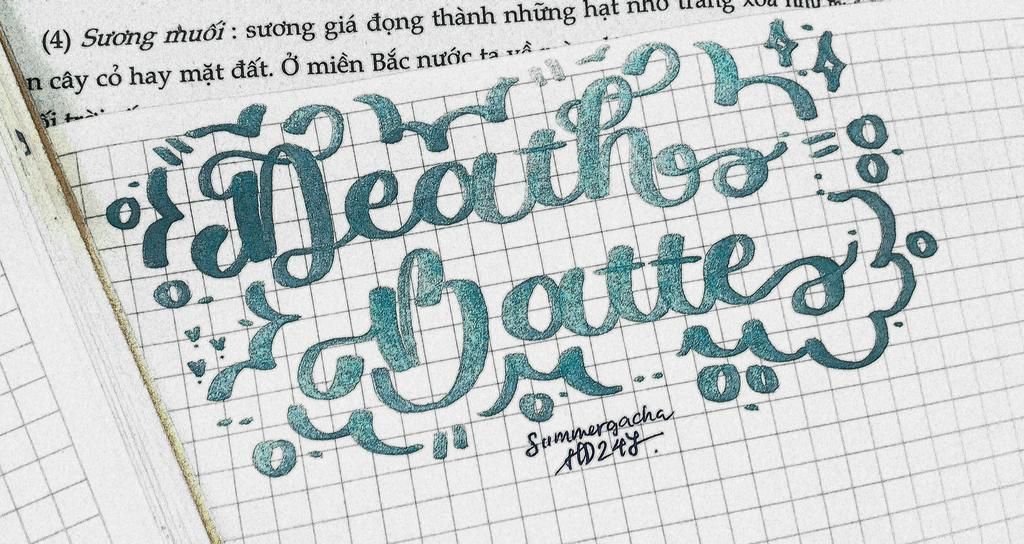 (4) Sương muối : sương giá đọng thành những hạt nhỏ trắng xoá như
n cây cỏ hay mặt đất. Ở miền Bắc nước ta về
Deaths
Summergacha
HD24Y.